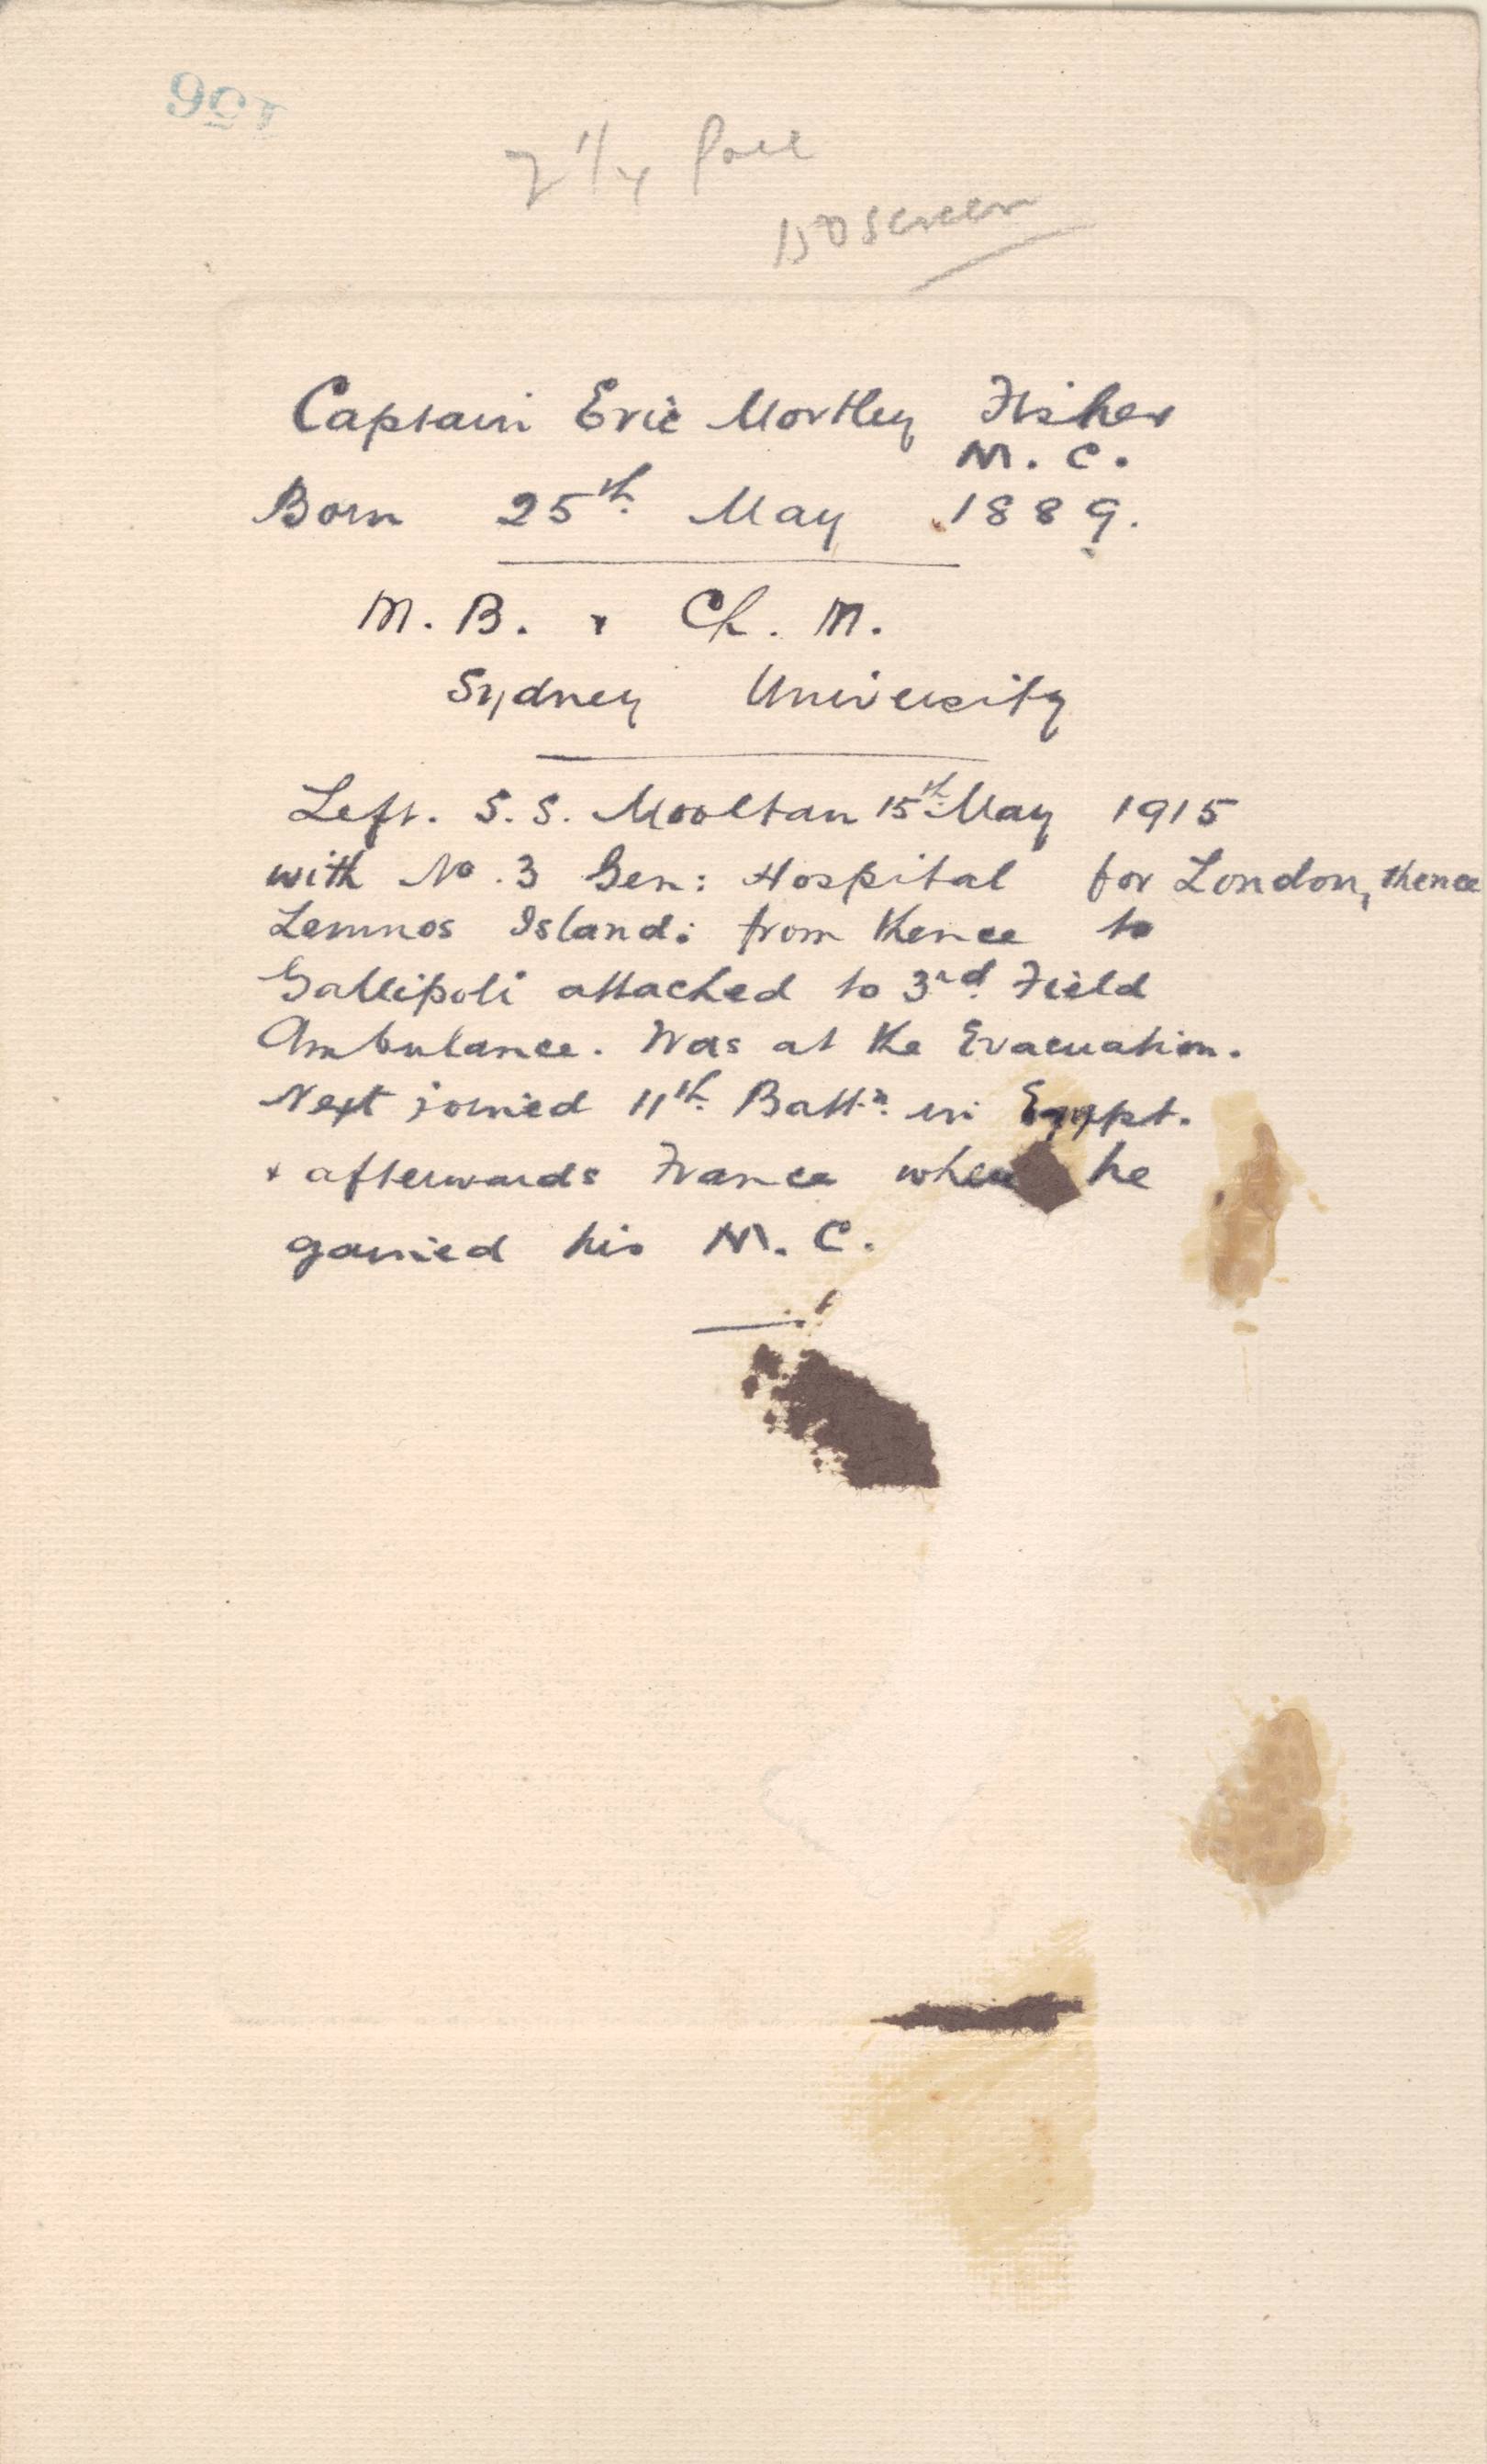 156
2 1/4 face
150 screen
Captain Eric Mortley Fisher
M. C.
Born 25th. May 1889.
M. B. & Ch. M.
Sydney University
Left. S. S. Mooltan 15th. May 1915
with No. 3 Gen: Hospital for London, thence
Lemnos Island: from thence to
Gallipoli attached to 3rd. Field
Ambulance. Was at the Evacuation.
Next joined 11th. Battn. in Egypt.
& afterwards France where he
gained his M. C.